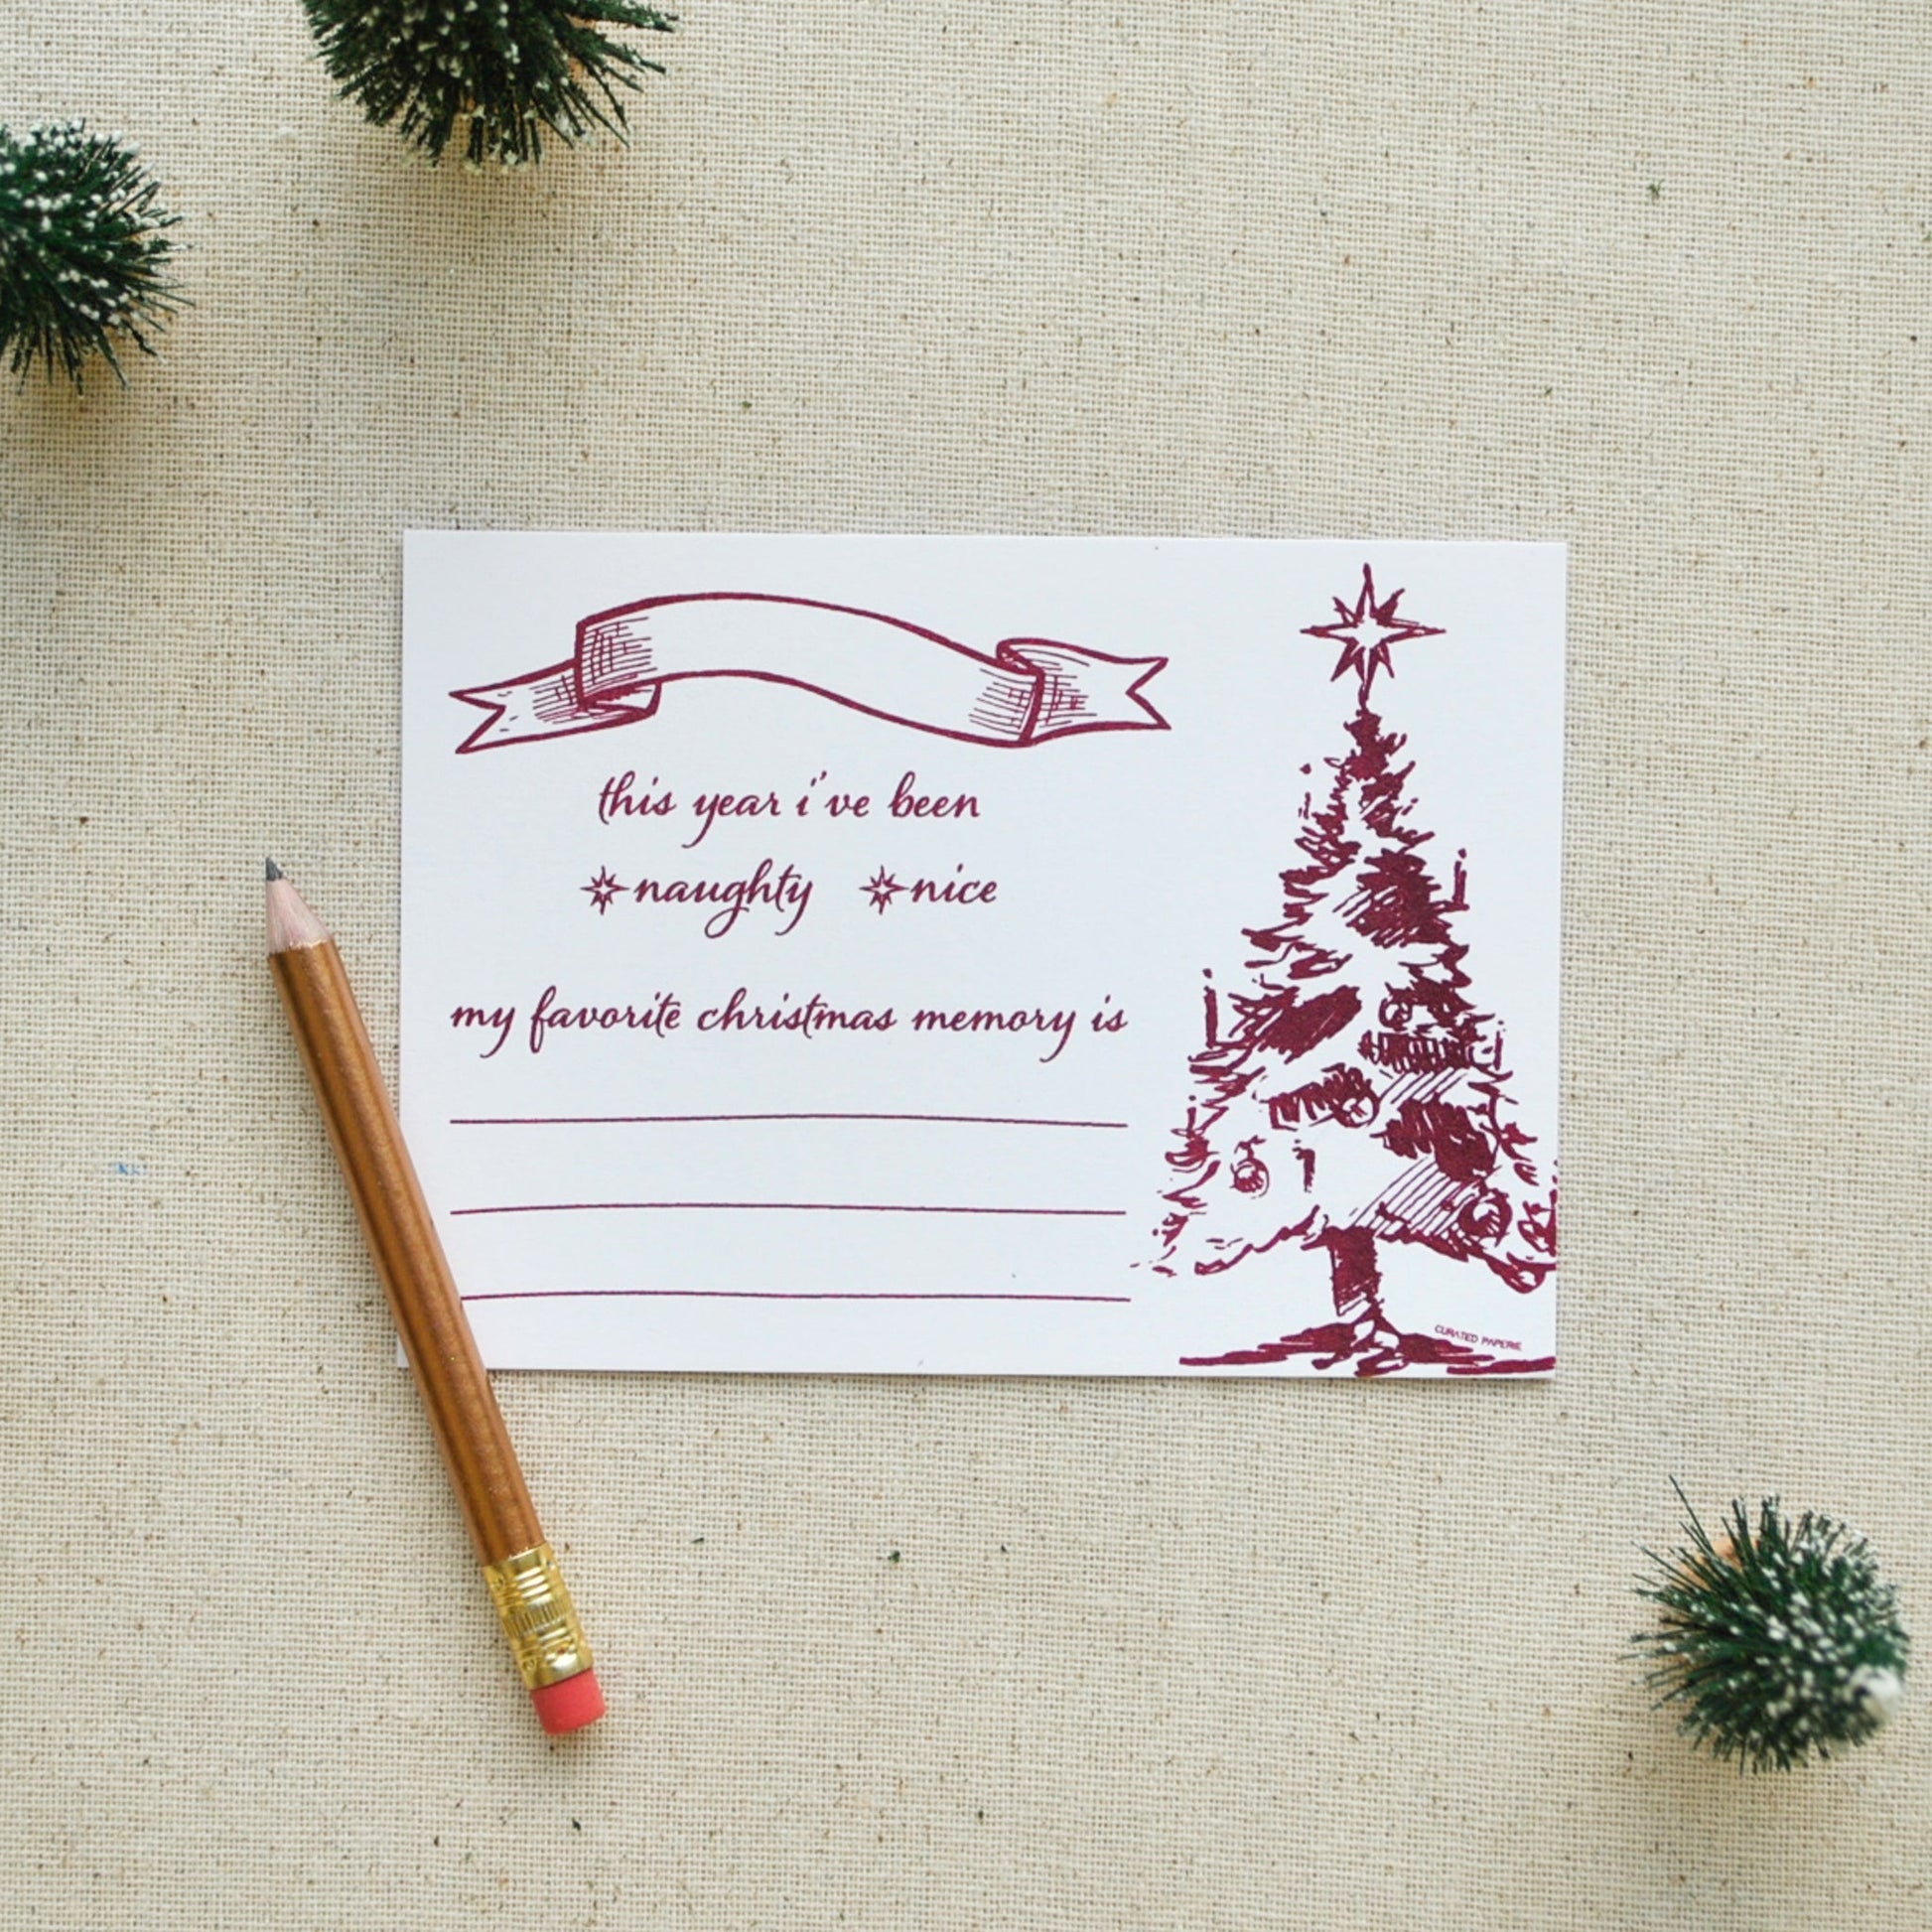 this year i've been
naughty nice
my favorite christmas memory is
CURATED PAPERIE